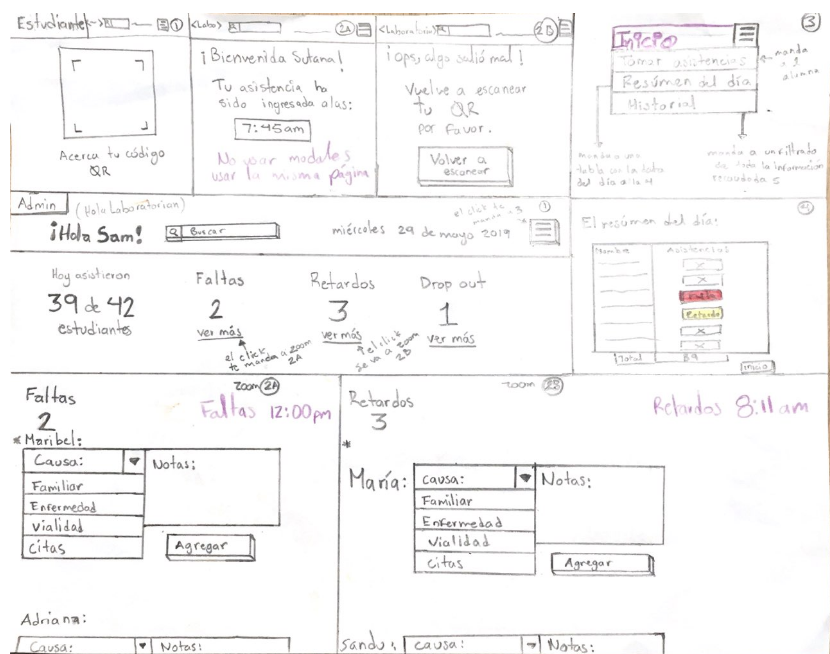 Estudiante
1
Acerca tu código
QR
<Labo>
2A
¡Bienvenida Sutana!
Tu asistencia ha
sido ingresada a las:
7:45am
No usar modales
usar la misma página
<Laboratoria>
2B
¡ops, algo salió mal!
Vuelve a escanear
tu QR
por favor.
Volver a
escanear
3
Inicio
Tomar asistencias
Resúmen del día
Historial
manda
a
alumna
manda a una
tabla con la data
del día
manda a un filtrado
de toda la información
recaudada 5
Admin
(Hola Laboratorian)
¡Hola Sam!
Buscar
miércoles 29 de mayo 2019
el click te
manda a 3
Hoy asistieron
39 de 42
estudiantes
Faltas
2
ver más
el click
te manda a zoom
2A
Retardos
3
ver más
el click
se va a zoom
2B
Drop out
1
ver más
El resúmen del día:
Nombre
Asistencias
Falta
Retardo
Total
39
inicio
Faltas
2
zoom 2A
Faltas 12:00pm
*Maribel:
Causa:
Notas:
Familiar
Enfermedad
Vialidad
citas
Agregar
Adriana:
Causa:
Notas:
Retardos
3
zoom 2B
Retardos 8:11 am
*
María:
causa:
Notas:
Familiar
Enfermedad
Vialidad
citas
Agregar
Sandy:
causa:
Notas: